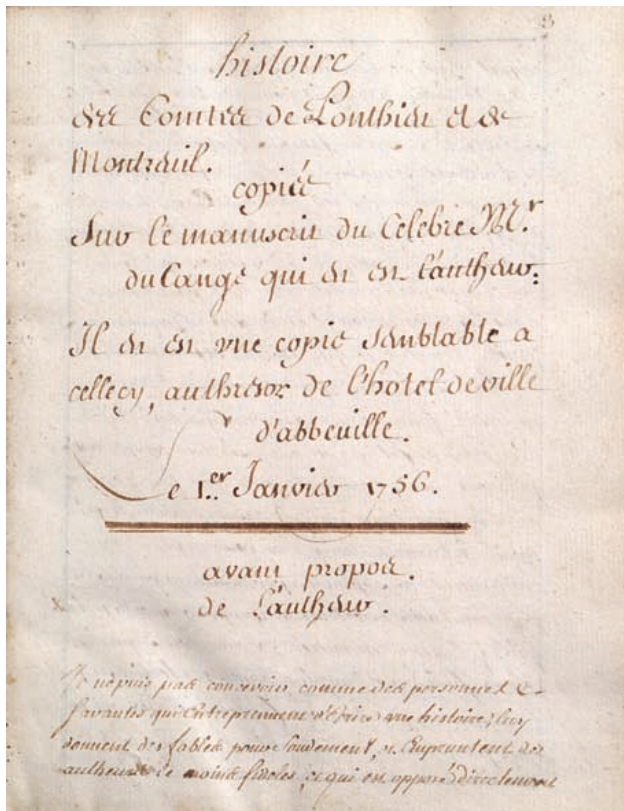 8
histoire
des Comtes de Ponthieu et de
Montreuil.
copiée
Sur le manuscrit du Celebre Mr.
duCange qui en est l'autheur.
Il en est vne copie semblable a
cellecy, authresor de l'hotel deville
d'abbeuille.
Le 1.er Janvier 1756.
avant propos.
de L'autheur.
Je nepuis pas concevoir, comme des personnes
sçavantes qui Entreprennent d'Ecrire vne histoire, luy
donnent des fables pour fondement, et Empruntent des
autheurs le moins fideles, ce qui est opposé directement